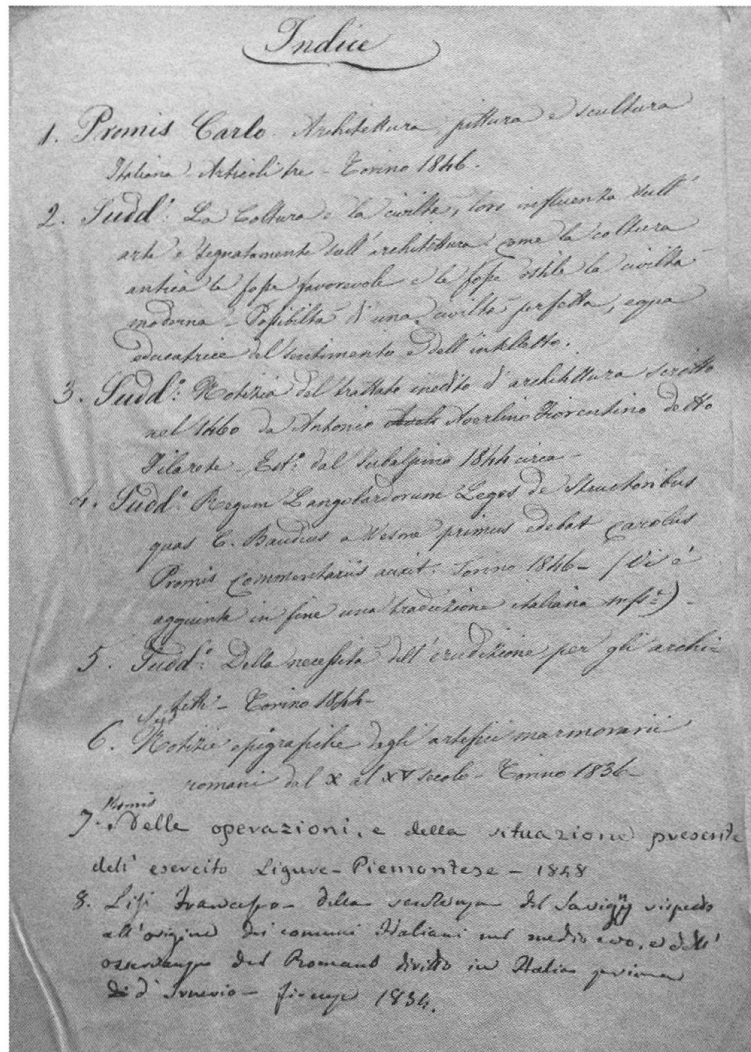 Indice
1. Promis Carlo. Architettura pittura e scultura
Italiana. Articoli tre - Torino 1846.
2. Sudd.º La Coltura e la civiltà, loro influenza sull'
arte e segnatamente sull'architettura: come la coltura
antica le fosse favorevole e le fosse ostile la civiltà
moderna - Possibiltà d'una civiltà perfetta, equa
educatrice del sentimento e dell'intelletto.
3. Sudd.º Notizia del trattato inedito d'architettura scritto
nel 1460 da Antonio Averlino Fiorentino detto
Filarete - Est.º dal Subalpino 1844 circa -
4. Sudd.º Regum Langobardorum Leges de Structoribus
quas C. Baudius a Vesme primus edebat Carolus
Promis Commentariis auxit. Torino 1846 - (Vi è
aggiunta in fine una traduzione italiana mss.ª) -
5. Sudd.º Della necessità dell'erudizione per gli archi-
tetti - Torino 1844 -
Sudd
6. Notizie epigrafiche degli artefici marmorarii
romani dal X al XV secolo - Torino 1836 -
Promis
7. Delle operazioni, e della situazione presente
dell' esercito Ligure-Piemontese - 1848
8. Lisi Francesco - della sentenza del Savigny rispetto
all'origine dei comuni Italiani nel medio evo, e dell'
osservanza del Romano diritto in Italia prima
d'Irnerio - firenze 1834.